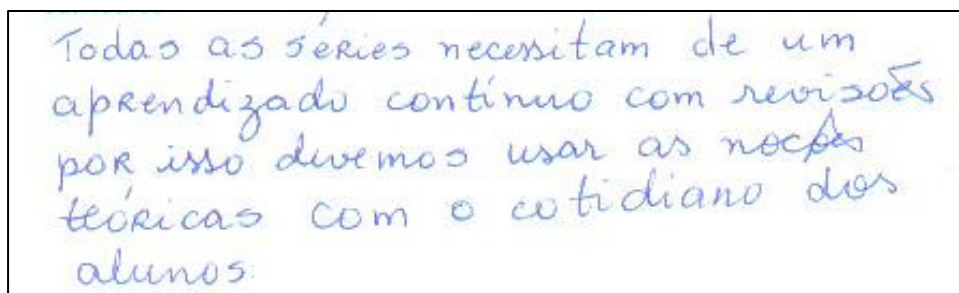 Todas as séries necessitam de um
aprendizado contínuo com revisões
por isso devemos usar as noções
teóricas com o cotidiano dos
alunos.